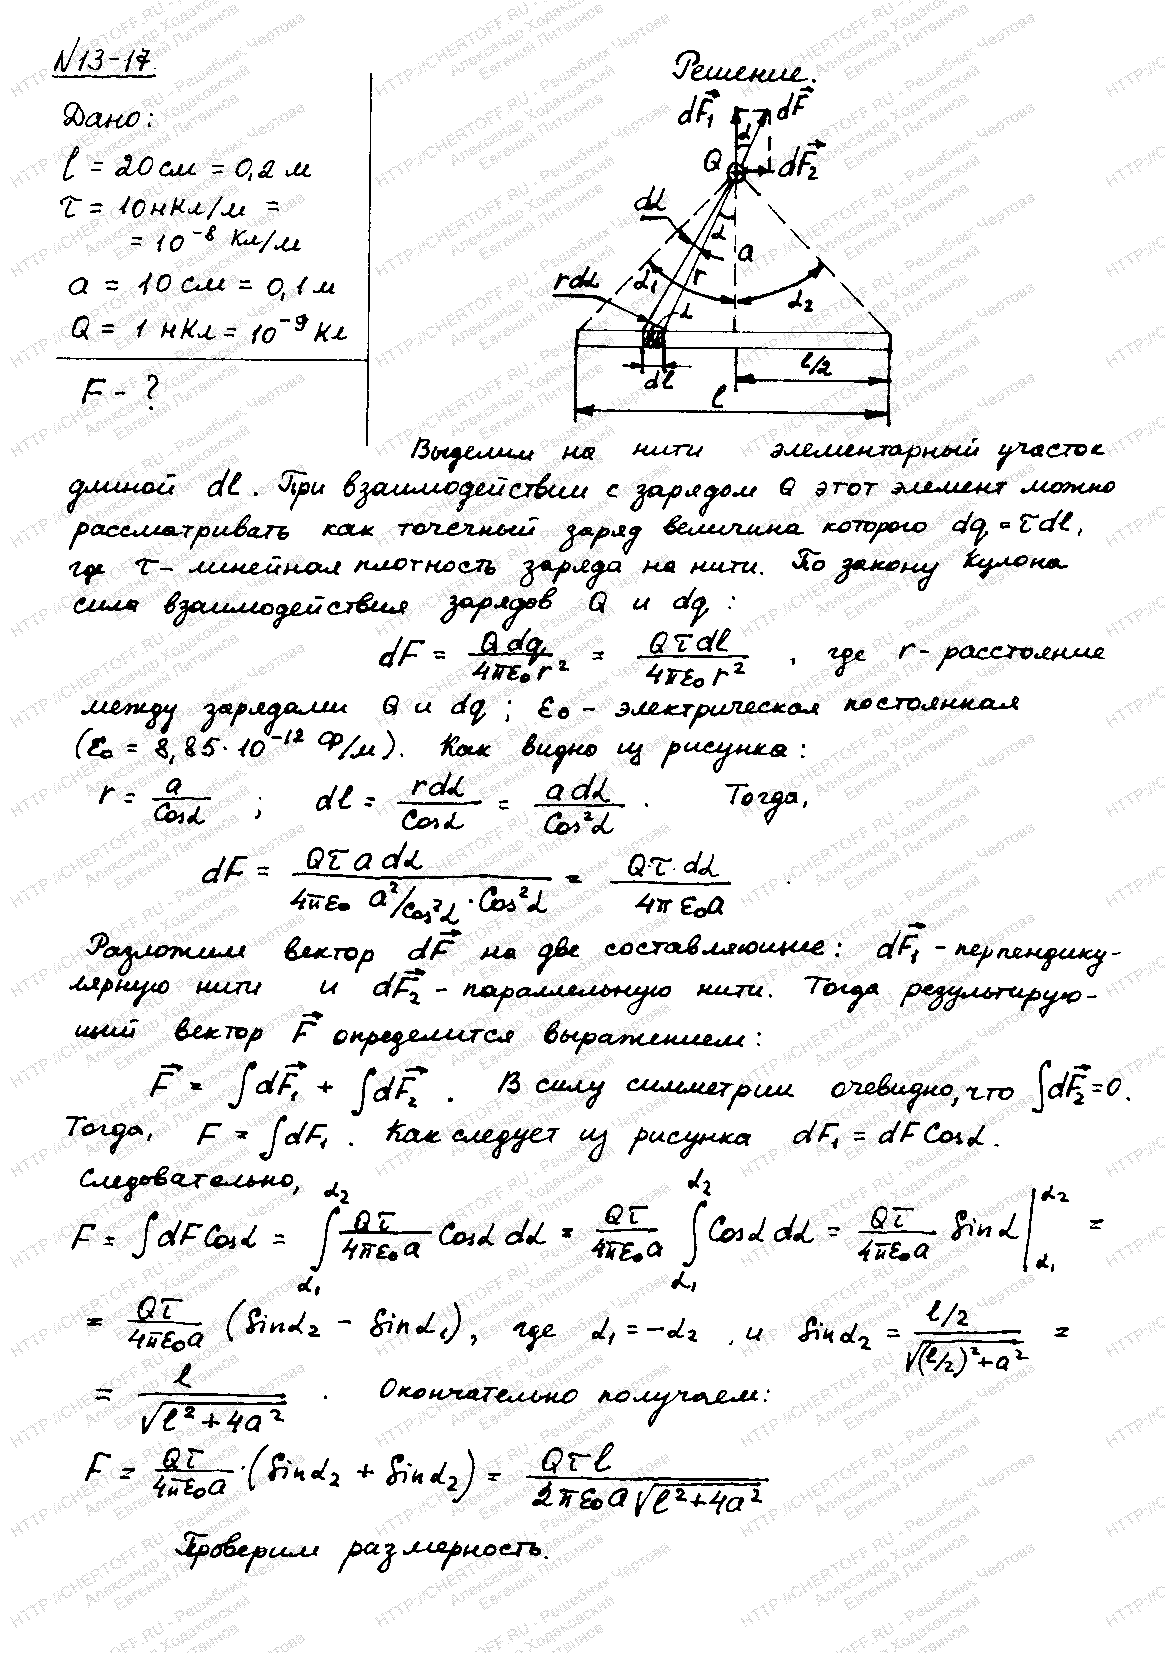 N13-17.
Дано:
l = 20 см = 0,2 м
τ = 10 нКл/м =
= 10⁻⁸ Кл/м
a = 10 см = 0,1 м
Q = 1 нКл = 10⁻⁹ Кл
F - ?
Решение.
dF₁ α dF
Q dF₂
dα α a
rdα α₁ r α α₂
dl l/2
l
Выделим на нити элементарный участок
длиной dl. При взаимодействии с зарядом Q этот элемент можно
рассматривать как точечный заряд величина которого dq = τdl,
где τ - линейная плотность заряда на нити. По закону Кулона
сила взаимодействия зарядов Q и dq:
dF = Qdq/4πε₀r² = Qτdl/4πε₀r² , где r - расстояние
между зарядами Q и dq; ε₀ - электрическая постоянная
(ε₀ = 8,85·10⁻¹² Ф/м). Как видно из рисунка:
r = a/Cosα ; dl = rdα/Cosα = adα/Cos²α . Тогда,
dF = Qτadα/(4πε₀ a²/Cos²α · Cos²α) = Qτ·dα/4πε₀a .
Разложим вектор dF на две составляющие: dF₁ - перпендику-
лярную нити и dF₂ - параллельную нити. Тогда результирую-
щий вектор F определится выражением:
F = ∫dF₁ + ∫dF₂ . В силу симметрии очевидно, что ∫dF₂ = 0.
Тогда, F = ∫dF₁ . Как следует из рисунка dF₁ = dF Cosα.
Следовательно,
F = ∫dF Cosα = ∫_{α₁}^{α₂} Qτ/4πε₀a Cosα dα = Qτ/4πε₀a ∫_{α₁}^{α₂} Cosα dα = Qτ/4πε₀a Sinα |_{α₁}^{α₂} =
= Qτ/4πε₀a (Sinα₂ - Sinα₁), где α₁ = -α₂ , и Sinα₂ = (l/2)/√((l/2)²+a²) =
= l/√(l²+4a²) . Окончательно получаем:
F = Qτ/4πε₀a · (Sinα₂ + Sinα₂) = Qτl/2πε₀a√(l²+4a²)
Проверим размерность.
HTTP://CHERTOFF.RU - Решебник Чертова
Александр Ходаковский
Евгений Литвинов